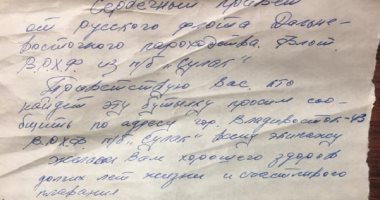 Сердечный привет
от русского флота Дальне-
восточного пароходства. Флот.
В.О.Х.Ф. из п/б "Сулак"
Приветствую Вас, кто
найдет эту бутылку просим соо-
бщить по адресу гор. Владивосток-43
В.О.Х.Ф. п/б "Сулак" всему экипажу
Желаем Вам хорошего здоров
долгих лет жизни и счастливого
плавания